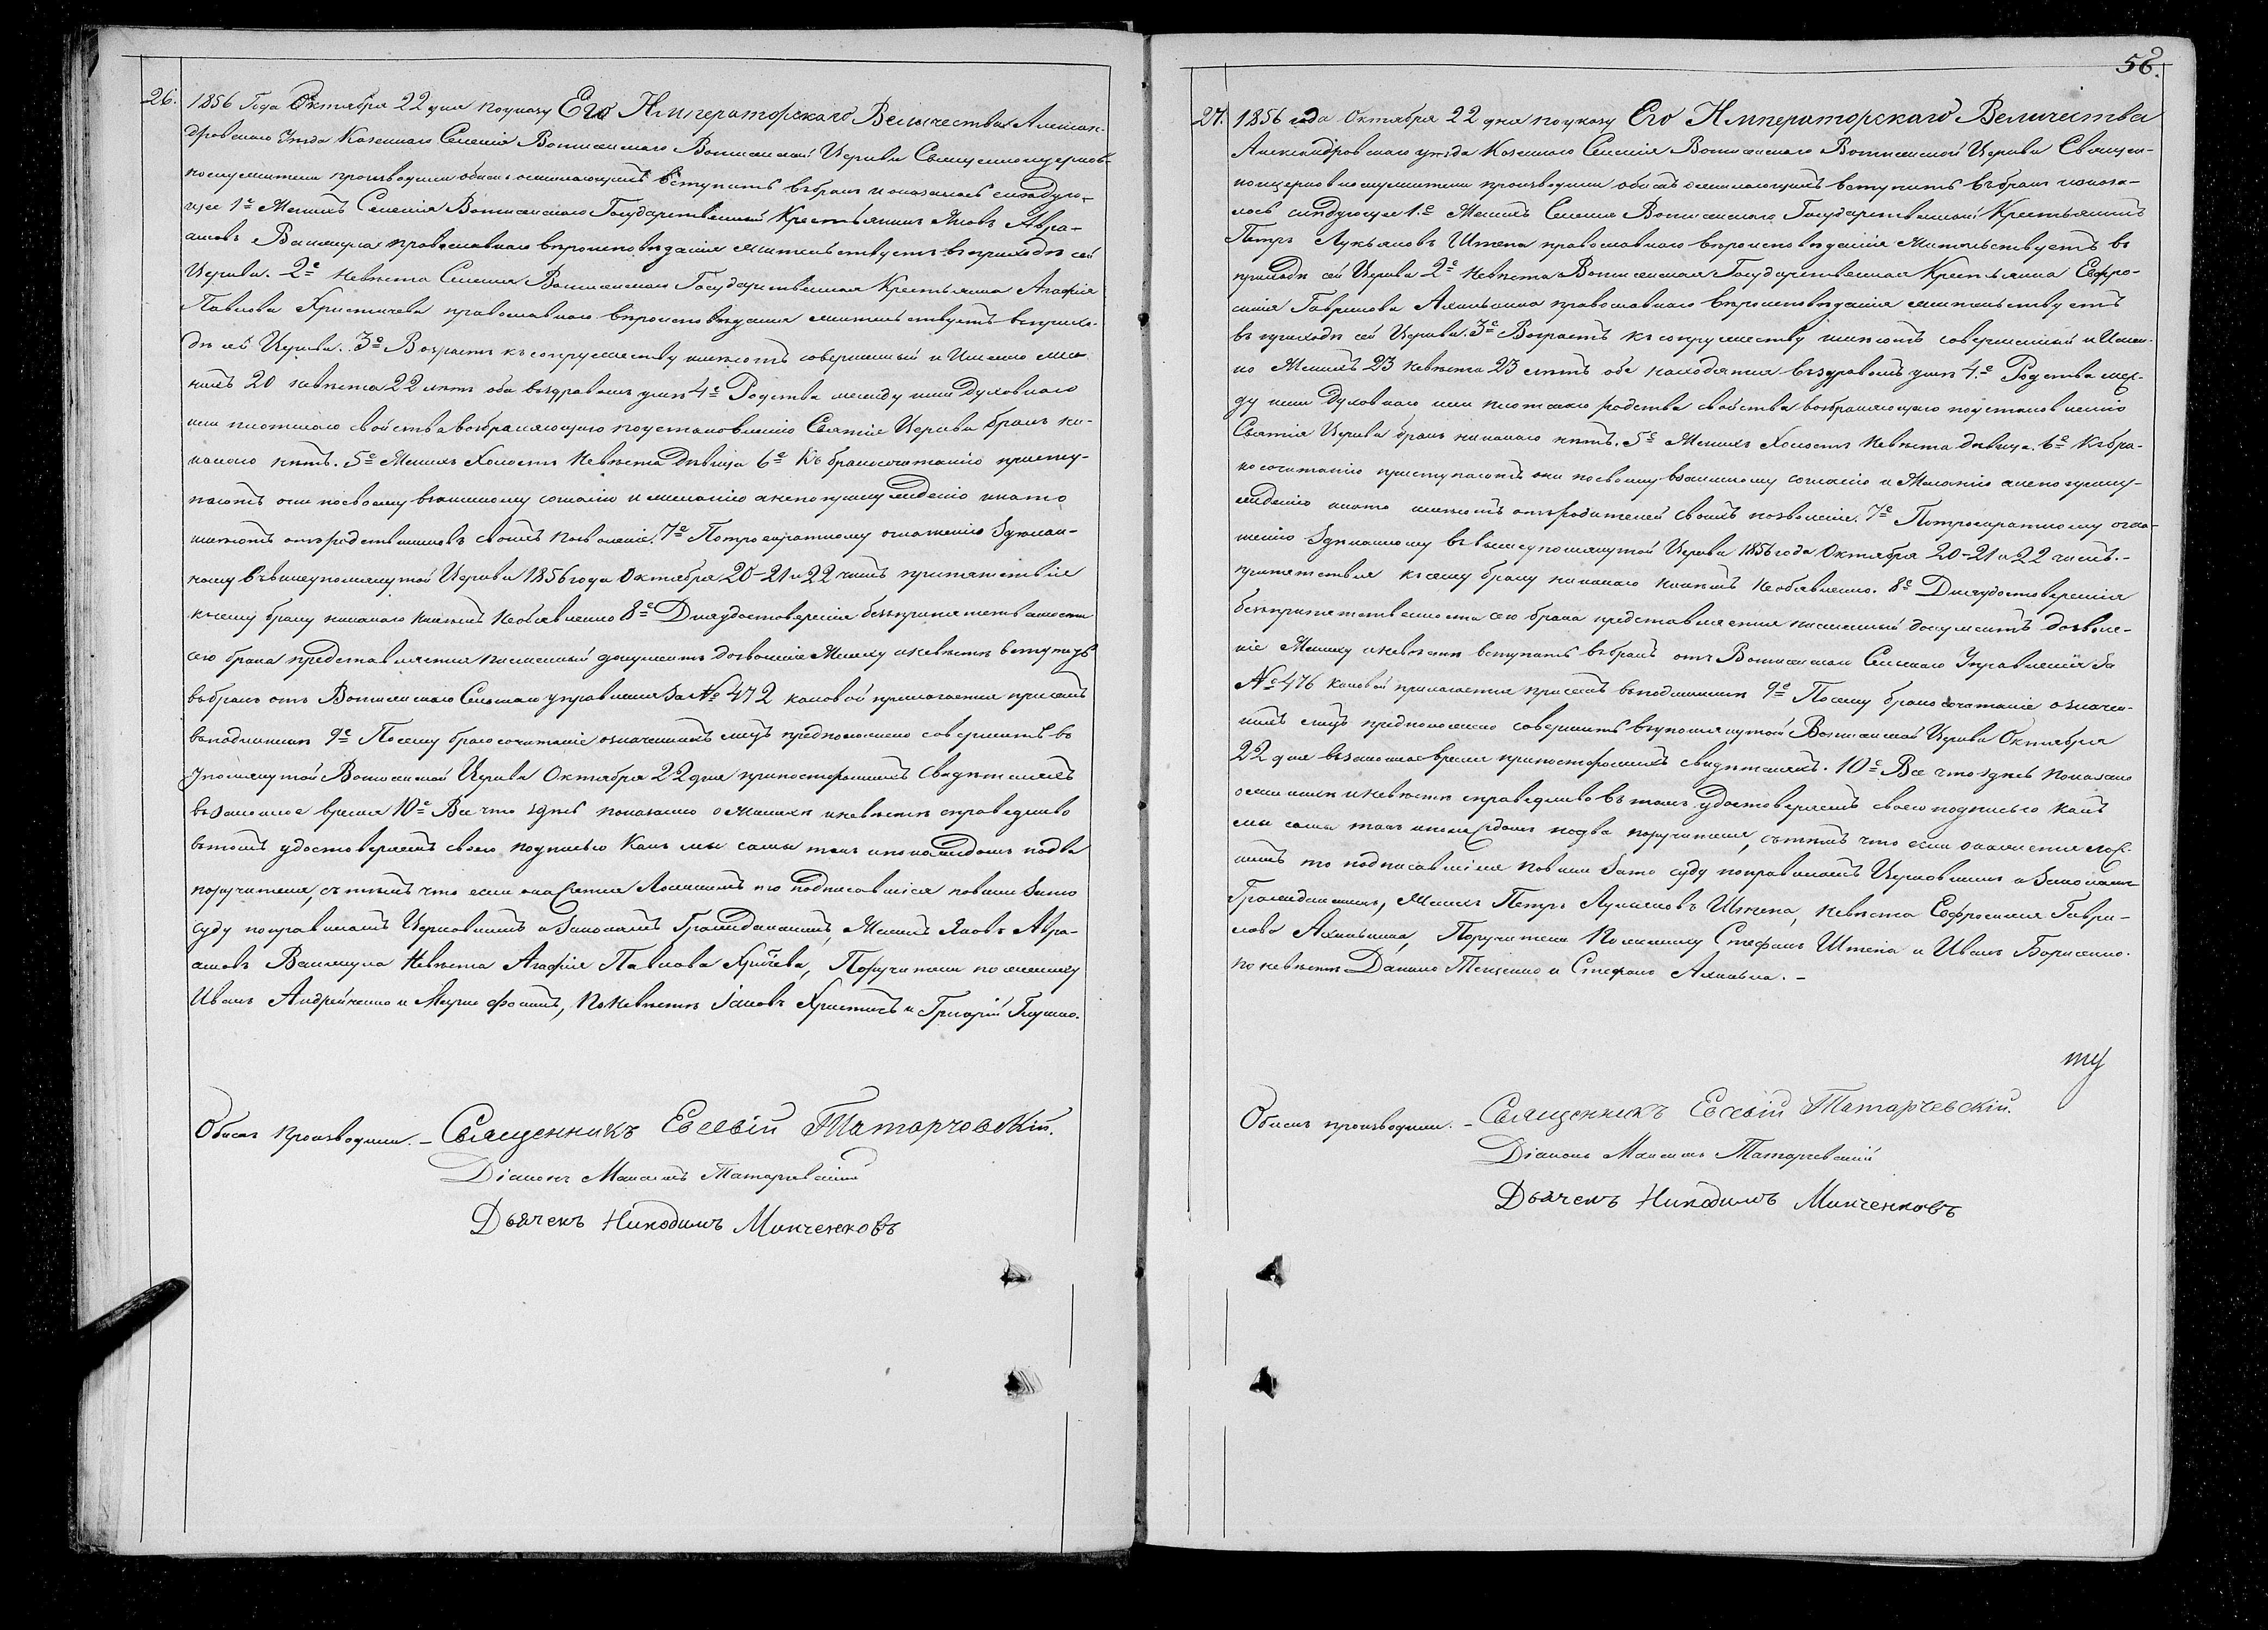 26. 1856 Года Октября 22 дня поуказу Его Императорскаго Величества Алексан-
дровскаго Уезда Казеннаго Селенія Воскресенской Церкви Священноцерков-
нослужители производили обыскъ о желающихъ вступить въ бракъ и оказалось следую-
щее 1е Женихъ Селенія Государственный Крестьянинъ Яковъ Авра-
амовъ православнаго вероисповеданія жительствуетъ въ приходѣ сей
Церкви. 2е Невѣста Селенія Государственная Крестьянка Агафія
Павлова православнаго вероисповеданія жительствуетъ въ прихо-
дѣ сей Церкви. 3е Возрастъ къ супружеству имѣютъ совершенный и Именно же-
нихъ 20 невѣста 22 лѣтъ оба въ здравомъ умѣ 4е Родства между ими Духовнаго
или плотскаго свойства возбраняющаго поустановленію Святія Церкви бракъ ни-
какого нѣтъ. 5е Женихъ Холостъ Невѣста Дѣвица 6е Къ бракосочетанію присту-
паютъ они посвоему взаимному согласію и желанію а непопринужденію и на то
имѣютъ отъ родственниковъ своихъ позволеніе. 7е По троекратному оглашенію Здѣлан-
ному въ вышеупомянутой Церкви 1856 года Октября 20-21 и 22 чисъ препятствія
къ сему браку никакого никемъ не объявлено 8е Для удостоверенія безпрепятственности
сего брака представляется письменный документъ дозволеніе Жениху и невѣстѣ вступить
въ бракъ отъ Сельскаго управленія За № 472 каковой прилагается при семъ
въ подлинникѣ 9е Посему бракосочетаніе означенныхъ лицъ предположено совершить въ
Упомянутой Церкви Октября 22 дня при постороннихъ Свидѣтеляхъ
въ Законное время 10е Все что здѣсь показано о Женихѣ и невѣстѣ справедливо
въ томъ удостоверяемъ своею подписью Какъ мы сами такъ и по каждомъ по два
поручителя, съ тѣмъ что если окажется Ложнымъ то Подписавшіеся повинны Зато
суду по правиламъ Церковнымъ и Законамъ Гражданскимъ, Женихъ Яковъ Авра-
амовъ Невѣста Агафія Павлова Поручители по жениху
Иванъ Андрейченко и По Невѣстѣ Іаковъ и Григорій
Обыскъ Производили. – Священникъ Евсевій Татарчевскій.
Діаконъ Татарчевскій
Дьячекъ Никодимъ Минченковъ
56.
27. 1856 года Октября 22 дня по указу Его Императорскаго Величества
Александровскаго уѣзда Казеннаго Селенія Церкви Священ-
ноцерковнослужители производили обыскъ о желающихъ вступить въ бракъ и оказа-
лось слѣдующее 1е Женихъ Селенія Государственный Крестьянинъ
Петръ Лукьяновъ Штепа православнаго вероисповеданія Жительствуетъ въ
приходѣ сей Церкви 2е Невѣста Государственная Крестьянка Ефро-
синія Гаврилова православнаго вероисповеданія жительствуетъ
въ приходѣ сей Церкви. 3е Возрастъ къ супружеству имѣютъ совершенный и Имен-
но Женихъ 23 Невѣста 23 лѣтъ оба находятся въ здравомъ умѣ 4е Родства меж-
ду ими Духовнаго или плотскаго родства свойства возбраняющаго поустановленію
Святія Церкви бракъ никакого нѣтъ. 5е Женихъ Холостъ Невѣста дѣвица. 6е Къ бра-
косочетанію приступаютъ они посвоему взаимному согласію и Желанію а непоприну-
жденію и на то имѣютъ отъ родителей своихъ позволеніе. 7е По троекратному огла-
шенію Здѣланному въ вышеупомянутой Церкви 1856 года Октября 20-21 и 22 чисъ. –
препятствія къ сему браку никакого никѣмъ не объявлено. 8е Для удостоверенія
безпрепятственности сего брака представляется письменный документъ дозволе-
ніе Жениху и невѣстѣ вступить въ бракъ отъ Сельскаго Управленія За
№ 476 каковой прилагается при семъ въ подлинникѣ 9е Посему бракосочетаніе означен-
ныхъ лицъ предположено совершить въ упомянутой Церкви Октября
22 дня въ законное время при постороннихъ свидѣтеляхъ. 10е Все что здѣсь показано
о женихѣ и невѣстѣ справедливо въ томъ удостоверяемъ своею подписью какъ
мы сами такъ и по каждомъ по два поручителя, съ тѣмъ что если окажется лож-
нымъ то подписавшіеся повинны Зато суду по правиламъ Церковнымъ и Законамъ
Гражданскимъ, Женихъ Петръ Лукьяновъ Штепа, Невѣста Ефросинія Гаври-
лова Поручители По жениху Стефанъ Штепа и Иванъ Борисенко.
по невѣстѣ Данило и Стефанъ
Обыскъ производили. – Священникъ Евсевій Татарчевскій.
Діаконъ Татарчевскій
Дьячекъ Никодимъ Минченковъ